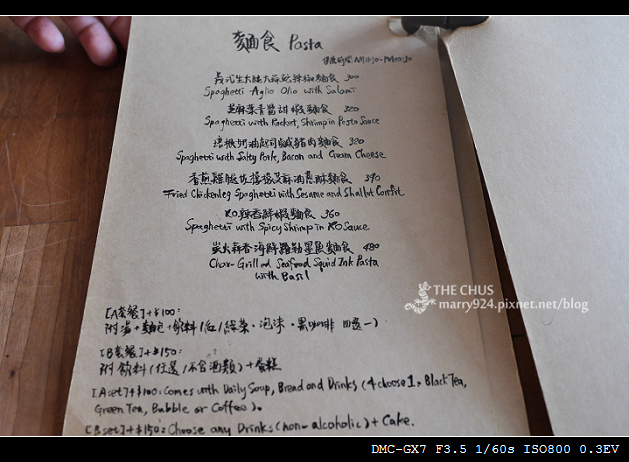 麵食 Pasta
供應時間 AM11:30-PM00:30
義式生火腿大蒜乾辣椒麵食 300
Spaghetti Aglio Olio with Salami
芝麻菜青醬甜蝦麵食 320
Spaghetti with Rocket, Shrimp in Pesto Sauce
培根奶油起司鹹豬肉麵食 320
Spaghetti with Salty Pork, Bacon and Cream Cheese
香煎雞腿佐
Fried Chickenleg Spaghetti with Sesame and Shallot Confit
XO辣香鮮蝦麵食 360
Spaghetti with Spicy Shrimp in XO Sauce
炭烤蒜香海鮮羅勒墨魚麵食 480
Char-Grilled Seafood Squid Ink Pasta
with Basil
THE CHUS
marry924.pixnet.net/blog
[A套餐]+$100:
附湯+麵包+飲料(紅/綠茶·泡沫·黑咖啡 四選一)
[B套餐]+$150:
附飲料(任選/不含酒類)+蛋糕
[A set]+$100: Comes with Daily Soup, Bread and Drinks (4 choose 1, Black Tea,
Green Tea, Bubble or Coffee).
[B set]+$150: Choose any Drinks (non-alcoholic) + Cake.
DMC-GX7 F3.5 1/60s ISO800 0.3EV